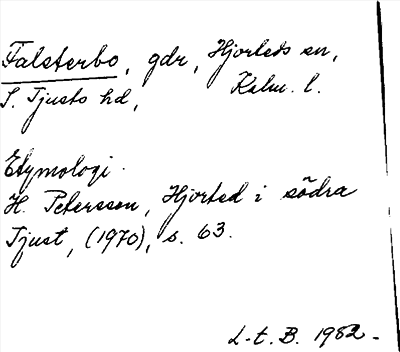 Falsterbo, gdr, Hjorteds sn,
S. Tjusts hd, Kalm. l.
Etymologi.
H. Petersson, Hjorted i södra
Tjust, (1970), s. 63.
L-t. B. 1982.